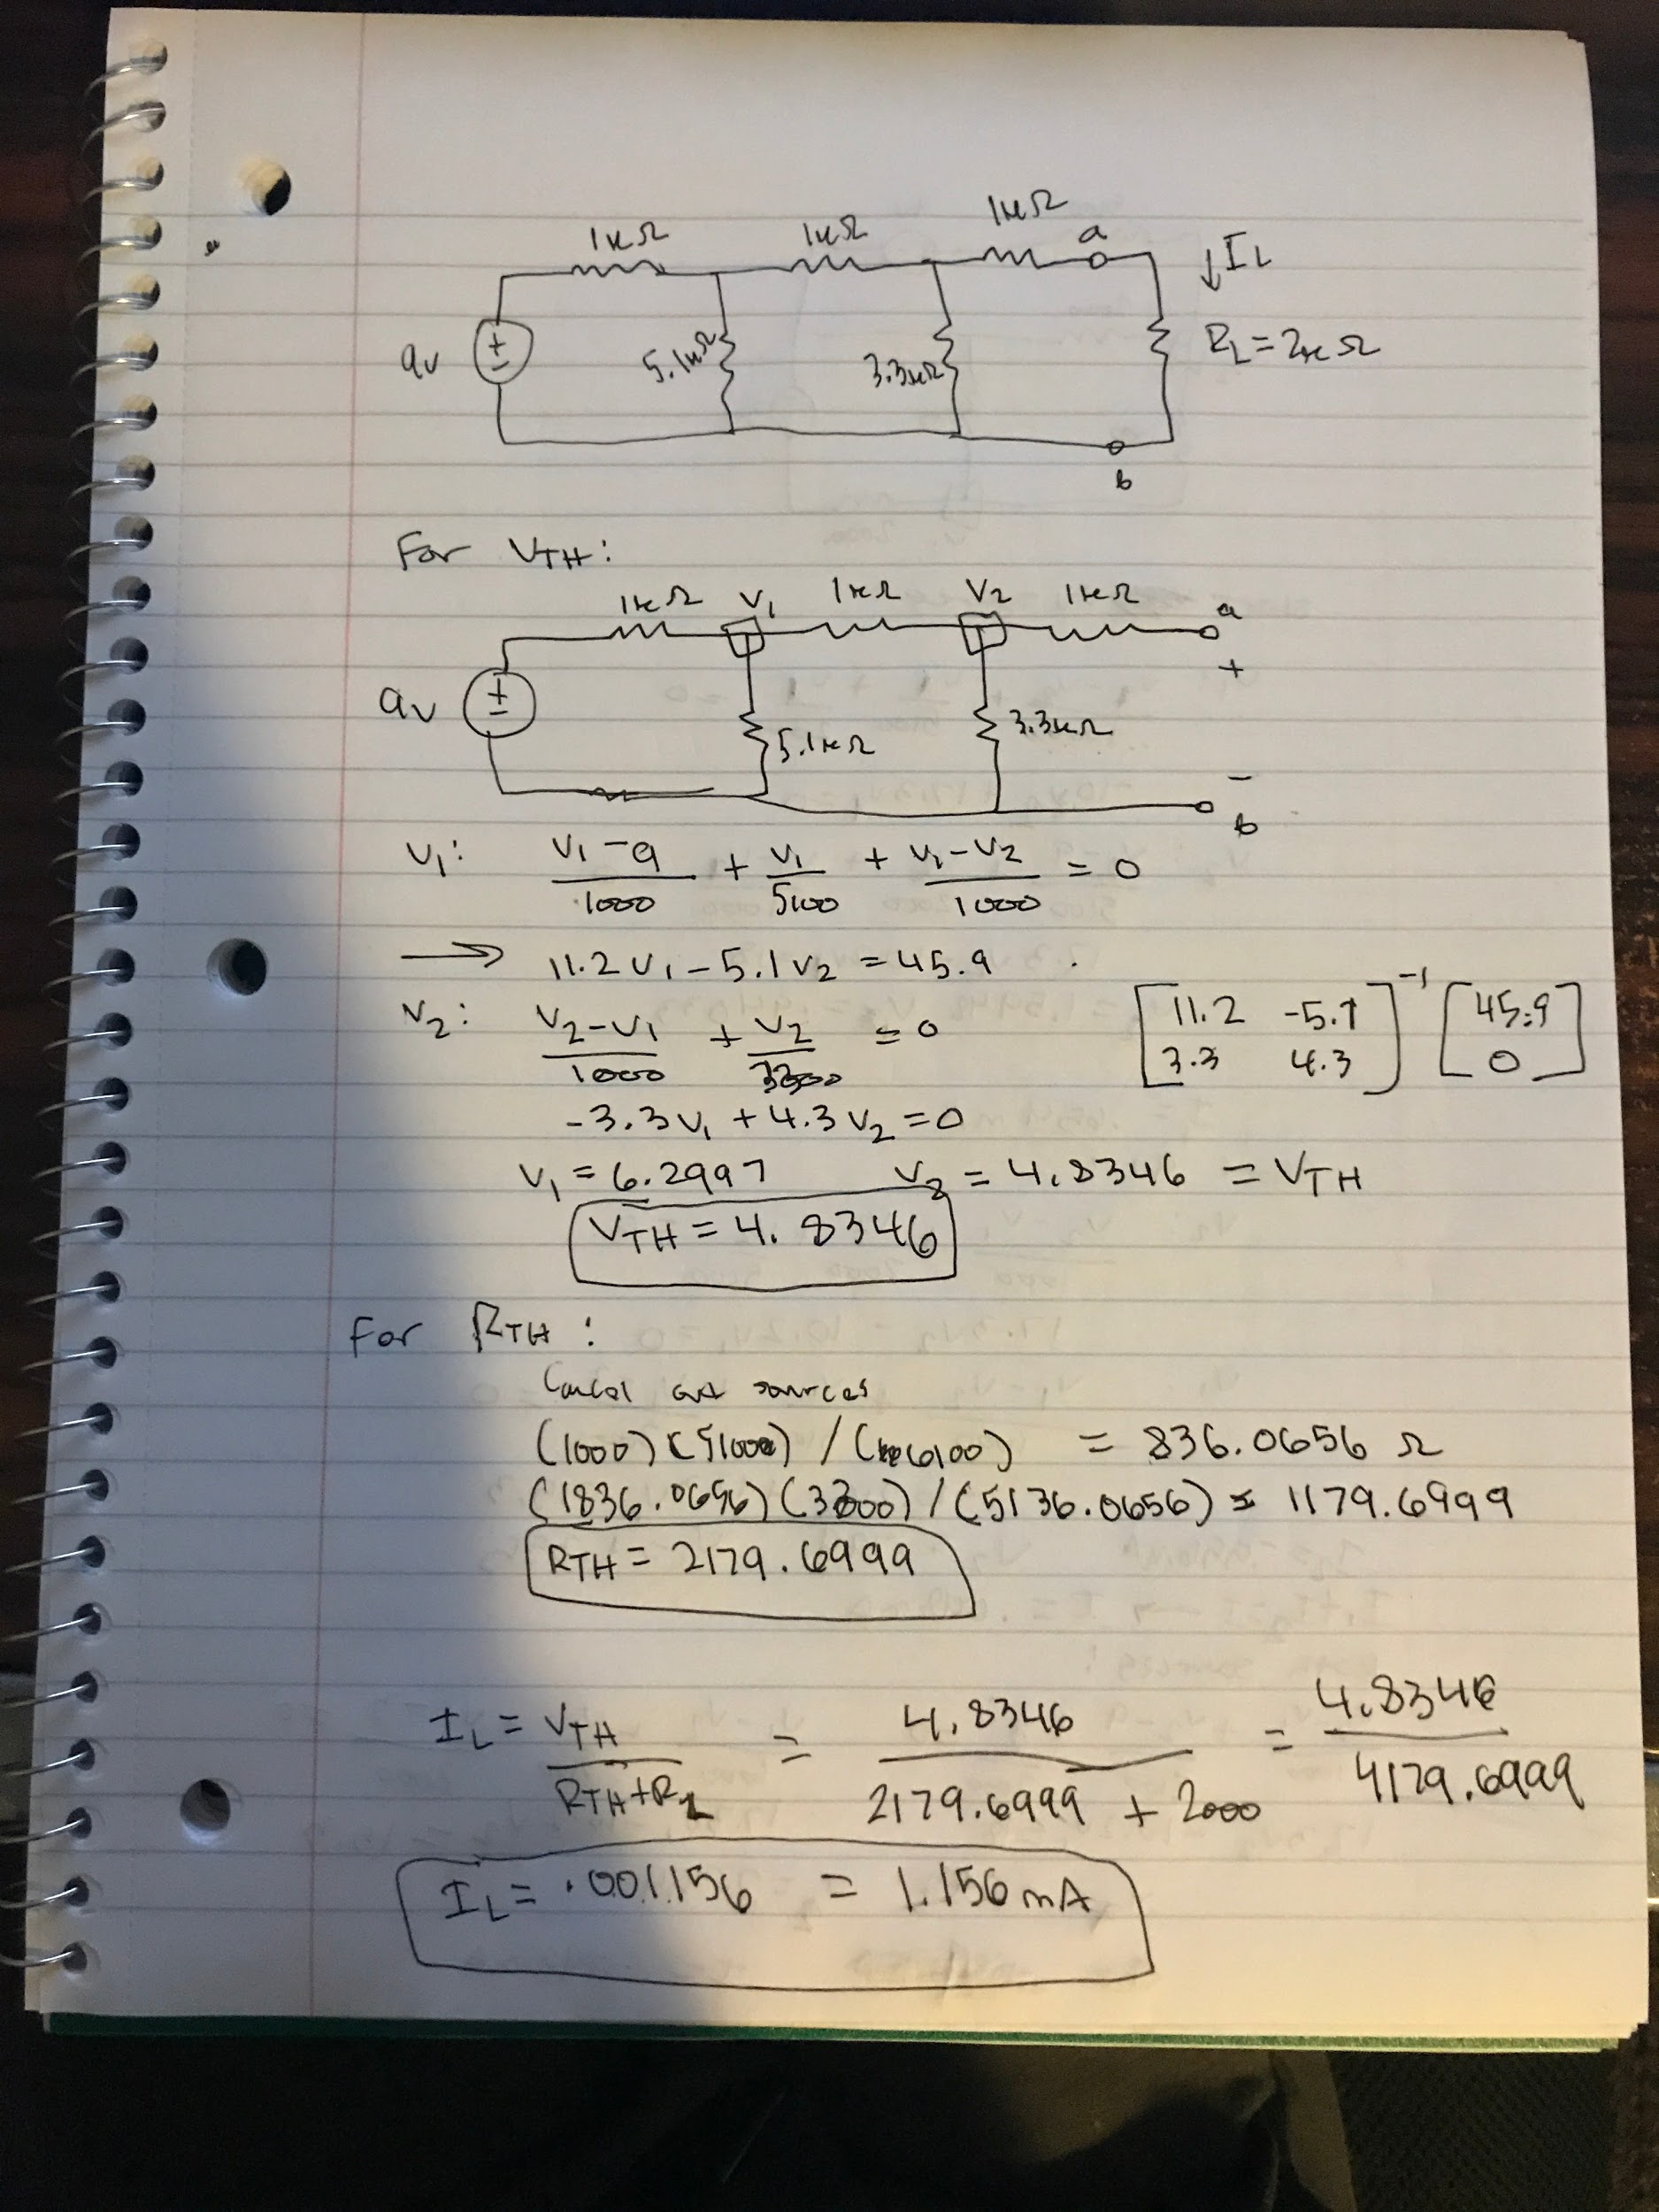 1kΩ 1kΩ 1kΩ a ↓IL
9v + − 5.1kΩ 3.3kΩ RL=2kΩ
b
For VTH:
1kΩ V1 1kΩ V2 1kΩ a
+
9v + − 5.1kΩ 3.3kΩ
−
b
V1: (V1-9)/1000 + V1/5100 + (V1-V2)/1000 = 0
→ 11.2V1-5.1V2=45.9
V2: (V2-V1)/1000 + V2/3300 = 0
[11.2 -5.1; 3.3 4.3]^-1 [45.9; 0]
-3.3V1+4.3V2=0
V1=6.2997 V2=4.8346 =VTH
VTH=4.8346
For RTH:
Cancel out sources
(1000)(5100)/(6100) = 836.0656 Ω
(1836.0656)(3300)/(5136.0656) = 1179.6999
RTH=2179.6999
IL = VTH/(RTH+RL) = 4.8346/(2179.6999 + 2000) = 4.8346/4179.6999
IL=.001156 = 1.156mA